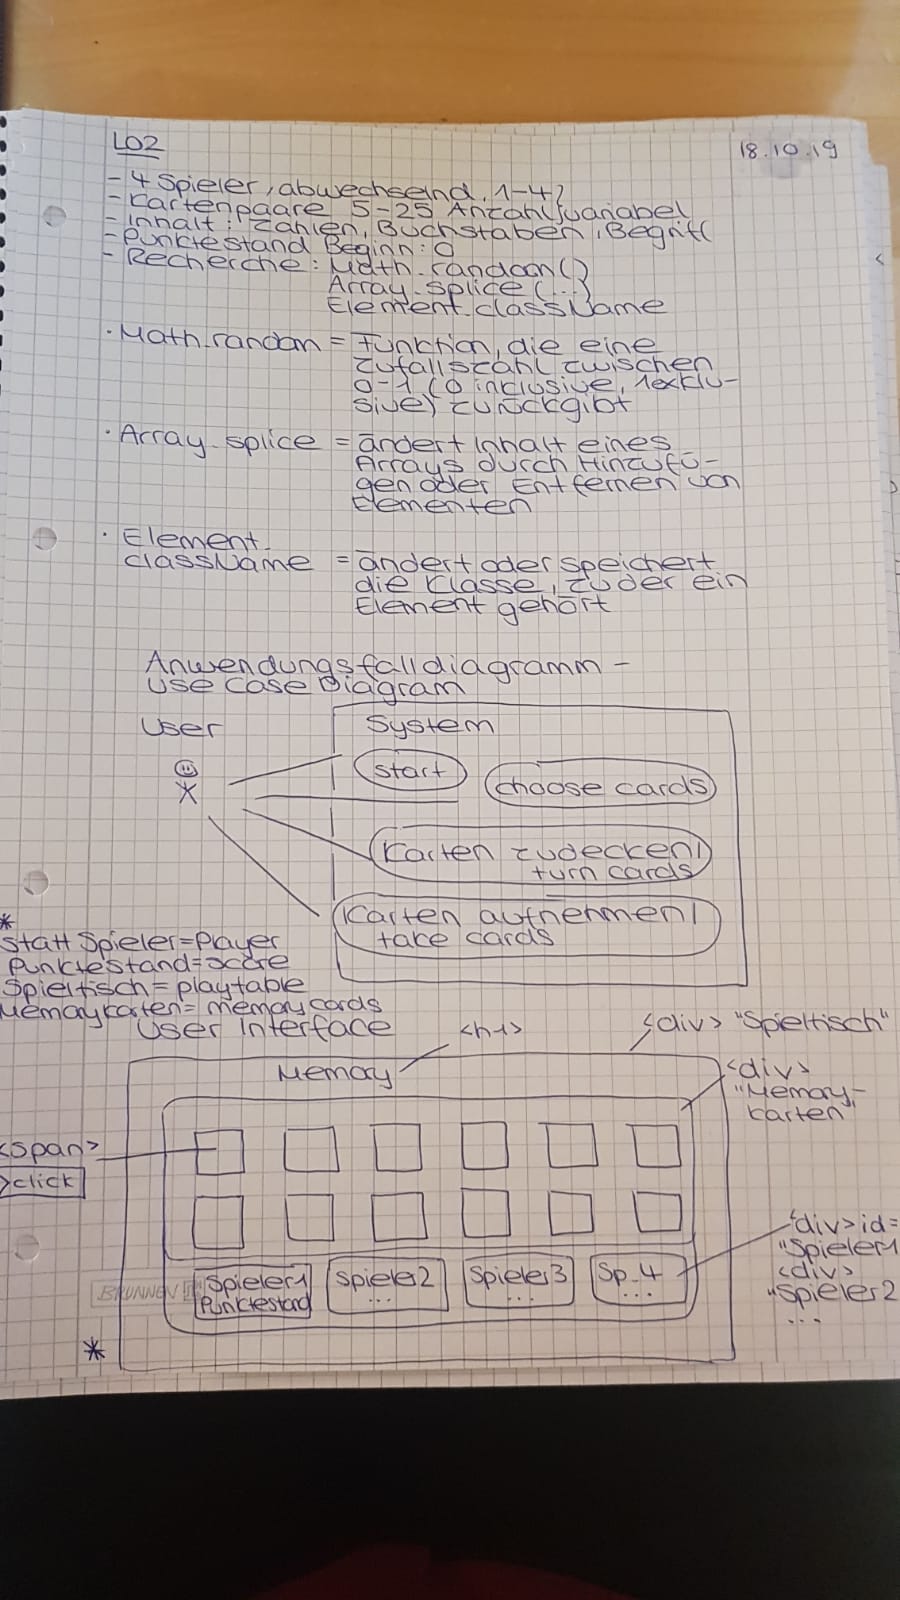 L02
18.10.19
- 4 Spieler, abwechselnd, 1-4}
- Kartenpaare 5-25 Anzahl}variabel
- Inhalt: Zahlen, Buchstaben, Begriff
- Punktestand Beginn: 0
- Recherche: Math.random()
Array.splice(...)
Element.className
· Math.random = Funktion, die eine
Zufallszahl zwischen
0-1 (0 inclusive, 1exklu-
sive) zurückgibt
· Array.splice = ändert Inhalt eines
Arrays durch Hinzufü-
gen oder Entfernen von
Elementen
· Element.
className = ändert oder speichert
die Klasse, zu der ein
Element gehört
Anwendungsfalldiagramm -
Use Case Diagram
User
System
start
choose cards
Karten zudecken/
turn cards
Karten aufnehmen/
take cards
*
statt Spieler=Player
Punktestand=score
Spieltisch=playtable
Memorykarten=memorycards
User Interface
<h1>
<div> "Spieltisch"
Memory
<div>
"Memory-
karten"
<span>
>click
<div>id=
"Spieler1
<div>
"Spieler2
...
Spieler1
Punktestand
Spieler2
...
Spieler3
...
Sp.4
...
BRUNNEN
*